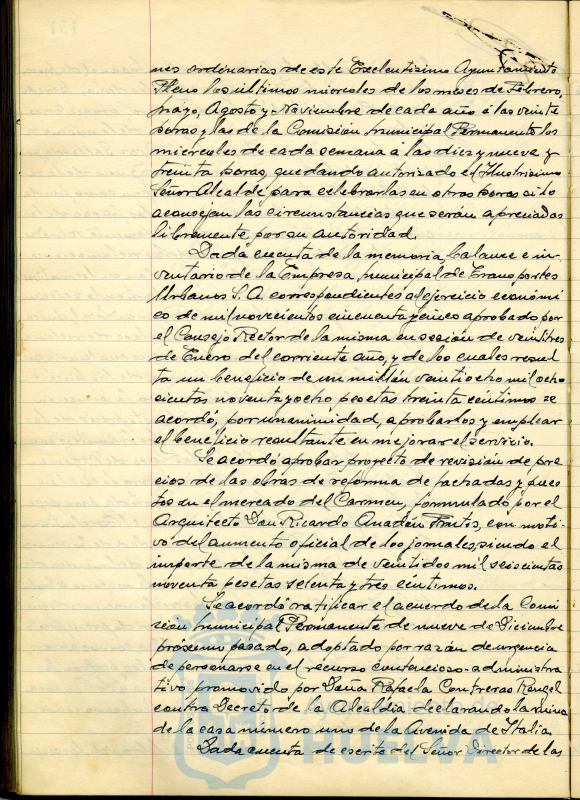 nes ordinarias de este Excelentísimo Ayuntamiento
Pleno los últimos miercoles de los meses de Febrero,
Mayo, Agosto y Noviembre de cada año á las veinte
horas y las de la Comisión Municipal Permanente los
miércoles de cada semana á las diez y nueve y
treinta horas, quedando autorizado el Ilustrisimo
Señor Alcalde para celebrarlas en otras horas si lo
aconsejan las circunstancias que serán apreciadas
libremente por su autoridad.
Dada cuenta de la memoria, balance e in-
ventario de la Empresa municipal de Transportes
Urbanos S.A. correspondientes al ejercicio económi
co de mil novecientos cincuenta y cinco aprobado por
el Consejo Rector de la misma en sesión de veintitres
de Enero del corriente año, y de los cuales resul
ta un beneficio de un millón veintiocho mil ocho
cientas noventa y ocho pesetas treinta céntimos se
acordó, por unanimidad, aprobarlos y emplear
el beneficio resultante en mejorar el servicio.
Se acordó aprobar proyecto de revisión de pre
cios de las obras de reforma de fachadas y pues
tos en el mercado del Carmen, formulado por el
Arquitecto Don Ricardo Anadón Frutos, con moti
vo del aumento oficial de los jornales, siendo el
importe de la misma de veintidos mil seiscientas
noventa pesetas setenta y tres céntimos.
Se acordó ratificar el acuerdo de la Comi
sión Municipal Permanente de nueve de Diciembre
próximo pasado, adoptado por razón de urgencia
de personarse en el recurso contencioso-administra
tivo promovido por Doña Rafaela Contreras Rangel
contra Decreto de la Alcaldía declarando la ruina
de la casa número uno de la Avenida de Italia.
Dada cuenta de escrito del Señor Director de las
HUELVA